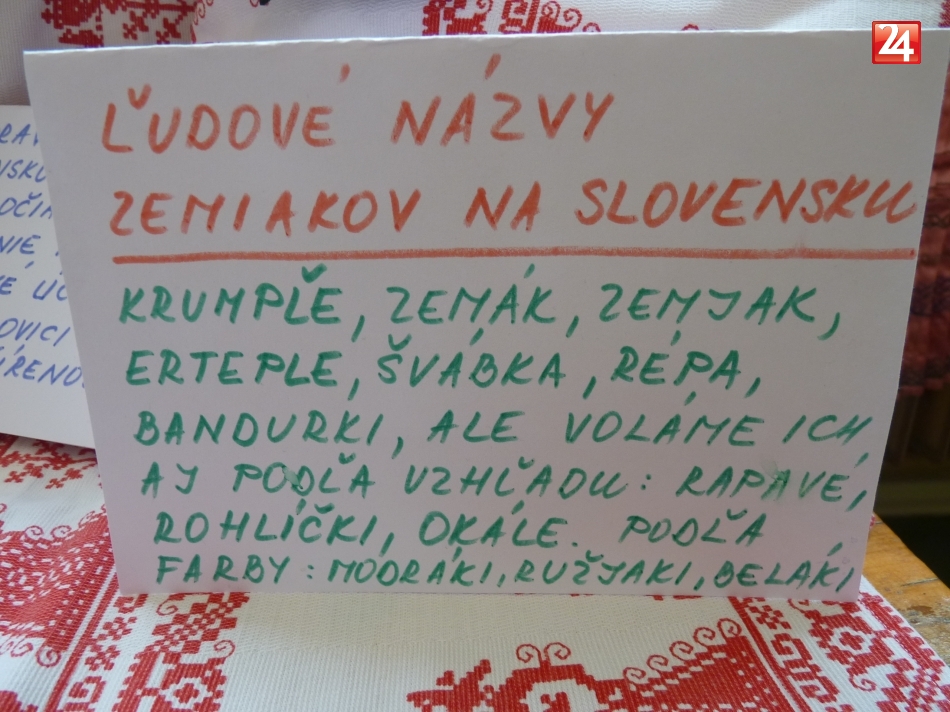 24
ĽUDOVÉ NÁZVY
ZEMIAKOV NA SLOVENSKU
KRUMPĽE, ZEMÁK, ZEMJAK,
ERTEPLE, ŠVÁBKA, RÉPA,
BANDURKI, ALE VOLÁME ICH
AJ PODĽA VZHĽADU: RAPAVÉ,
ROHLÍČKI, OKÁLE. PODĽA
FARBY: MODRÁKI, RUŽJAKI, BELÁKI